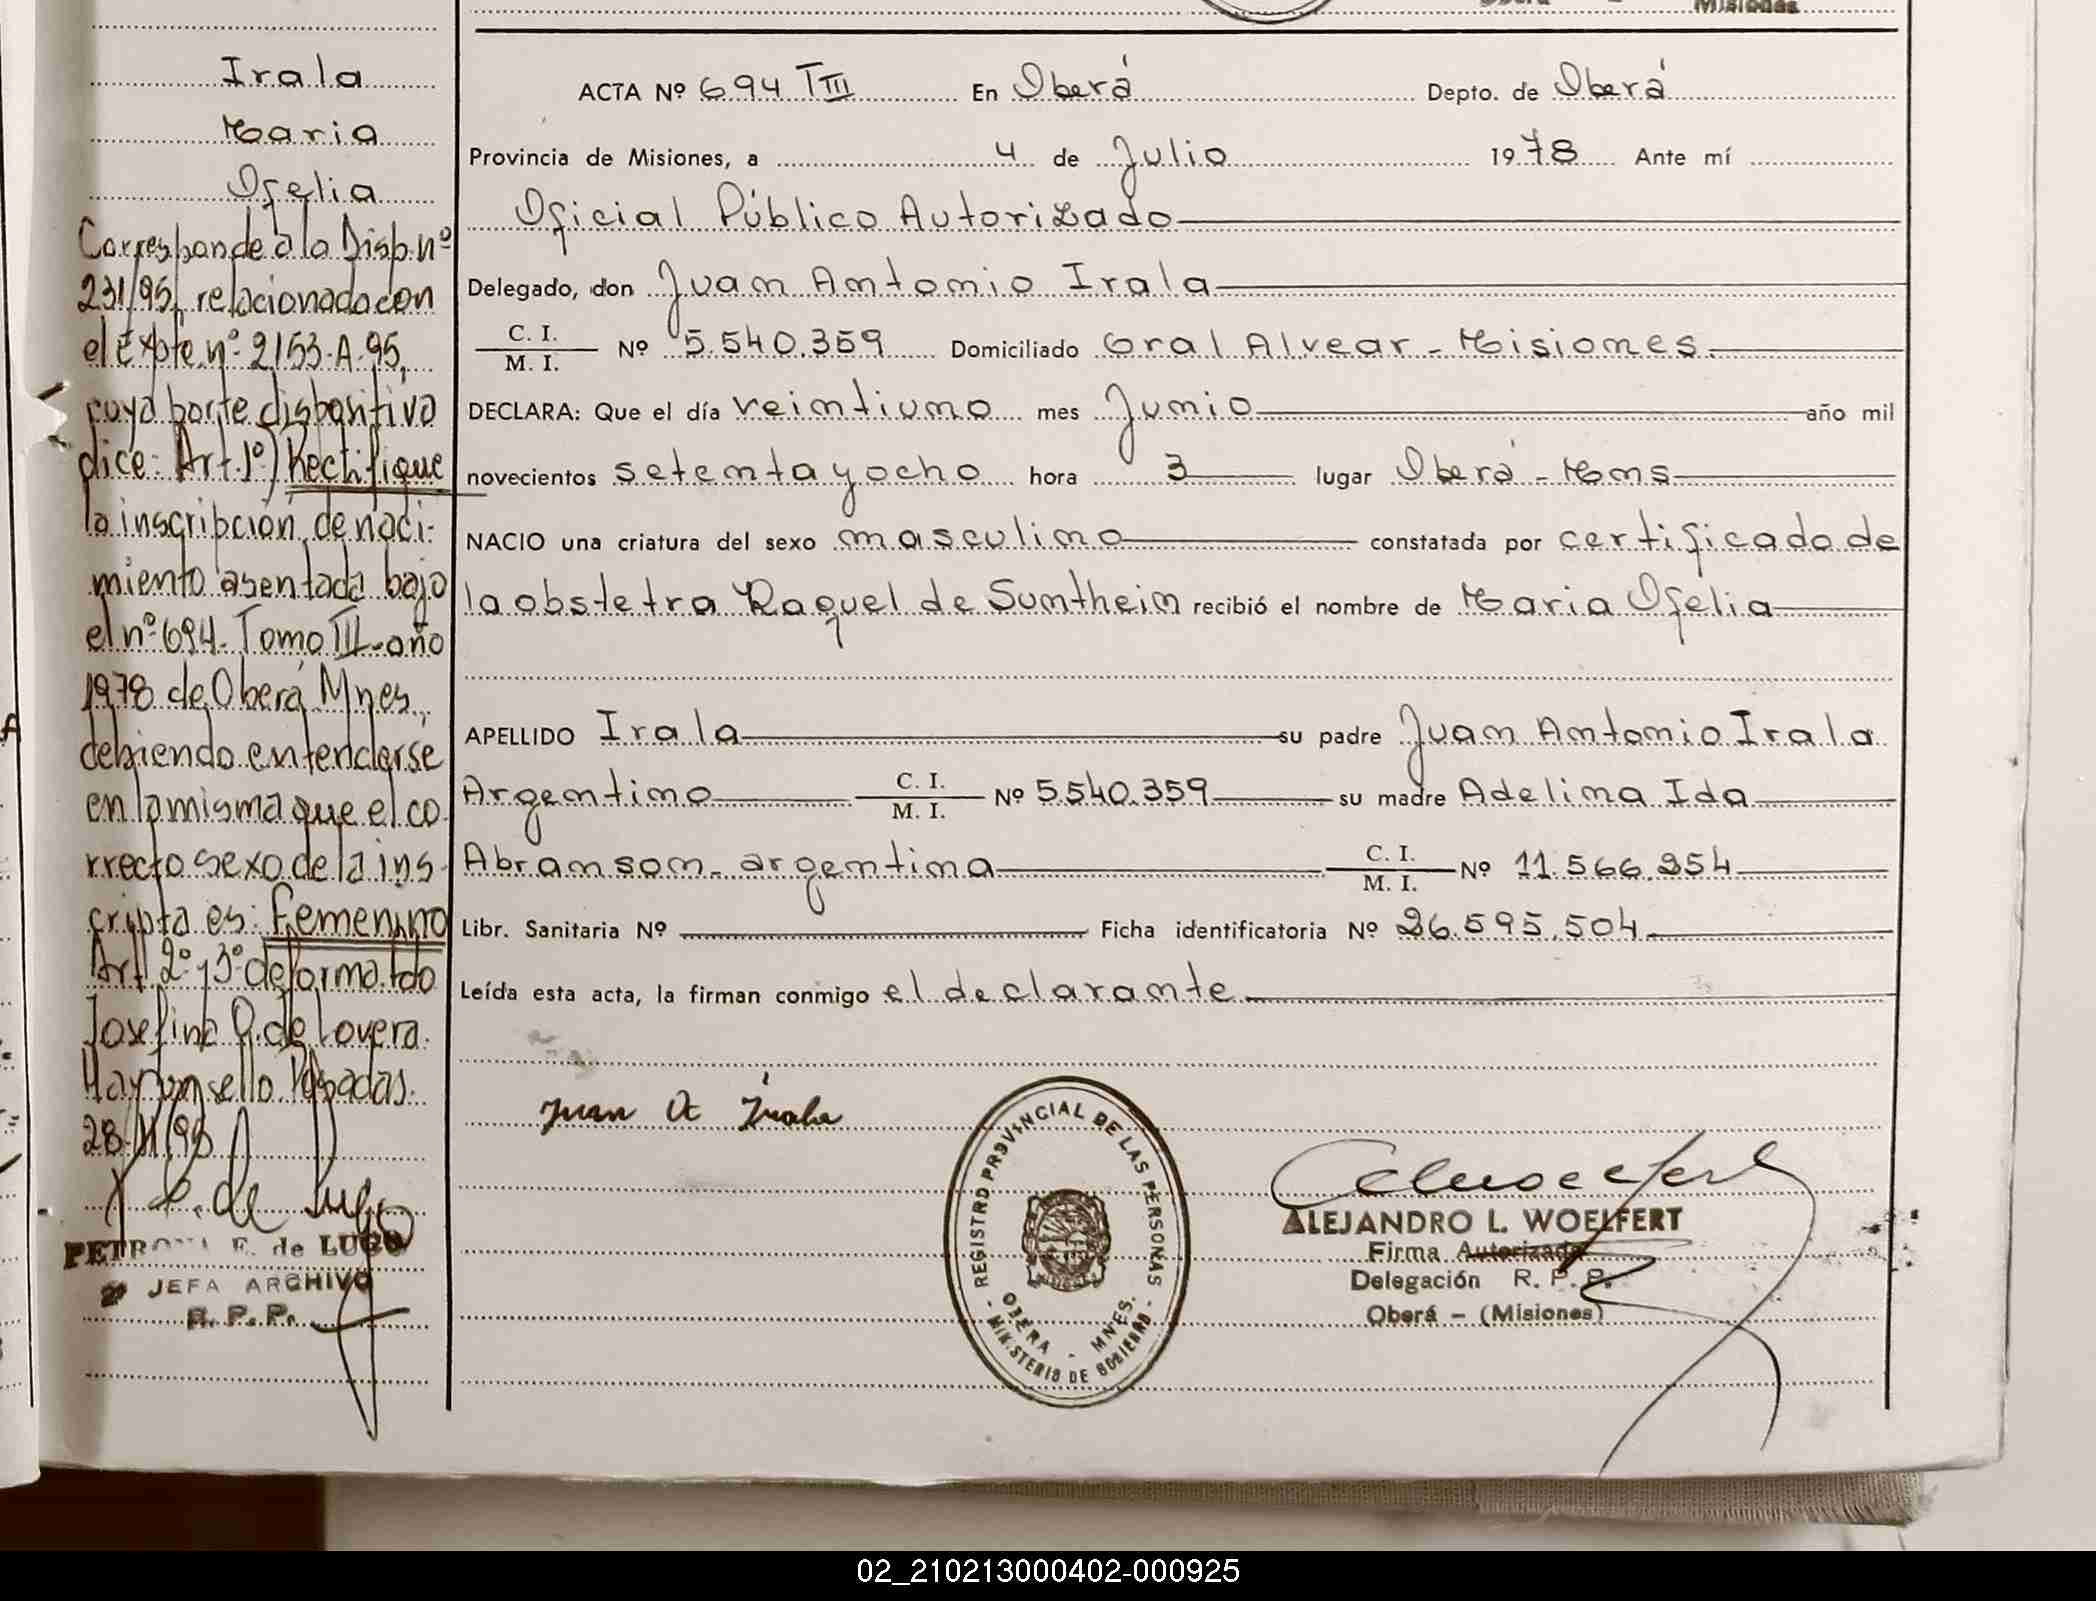 Misiones
Irala
Maria
Ofelia
Corresponde a la Disp. nº
231/95, relacionada con
el Expte. nº 2153-A-95,
cuya parte dispositiva
dice: Art. 1º) Rectifique
la inscripción de naci-
miento asentada bajo
el nº 694. Tomo III - año
1978 de Oberá Mnes,
debiendo entenderse
en la misma que el co-
rrecto sexo de la ins-
cripta es: Femenino
Art. 2º y 3º de forma. Fdo
Josefina Q. de Lovera.
Hay un sello. Posadas.
PETRONA E. de LUGO
JEFA ARCHIVO
R. P. P.
ACTA Nº 694 TIII En Oberá Depto. de Oberá
Provincia de Misiones, a 4 de Julio 1978 Ante mí
Oficial Público Autorizado
Delegado, don Juan Antonio Irala
C. I.
M. I.
Nº 5.540.359 Domiciliado Gral Alvear - Misiones.
DECLARA: Que el día veintiuno mes Junio año mil
novecientos setenta y ocho hora 3 lugar Oberá - Mns
NACIO una criatura del sexo masculino constatada por certificado de
la obstetra Raquel de Suntheim recibió el nombre de Maria Ofelia
APELLIDO Irala su padre Juan Antonio Irala
Argentino C. I. M. I. Nº 5.540.359 su madre Adelina Ida
Abramson - argentina C. I. M. I. Nº 11.566.254
Libr. Sanitaria Nº Ficha identificatoria Nº 26.595.504
Leída esta acta, la firman conmigo el declarante
Juan A Irala
REGISTRO PROVINCIAL DE LAS PERSONAS
OBERA - MNES.
MINISTERIO DE GOBIERNO
ALEJANDRO L. WOELFERT
Firma Autorizada
Delegación R. P. P.
Oberá - (Misiones)
02_210213000402-000925